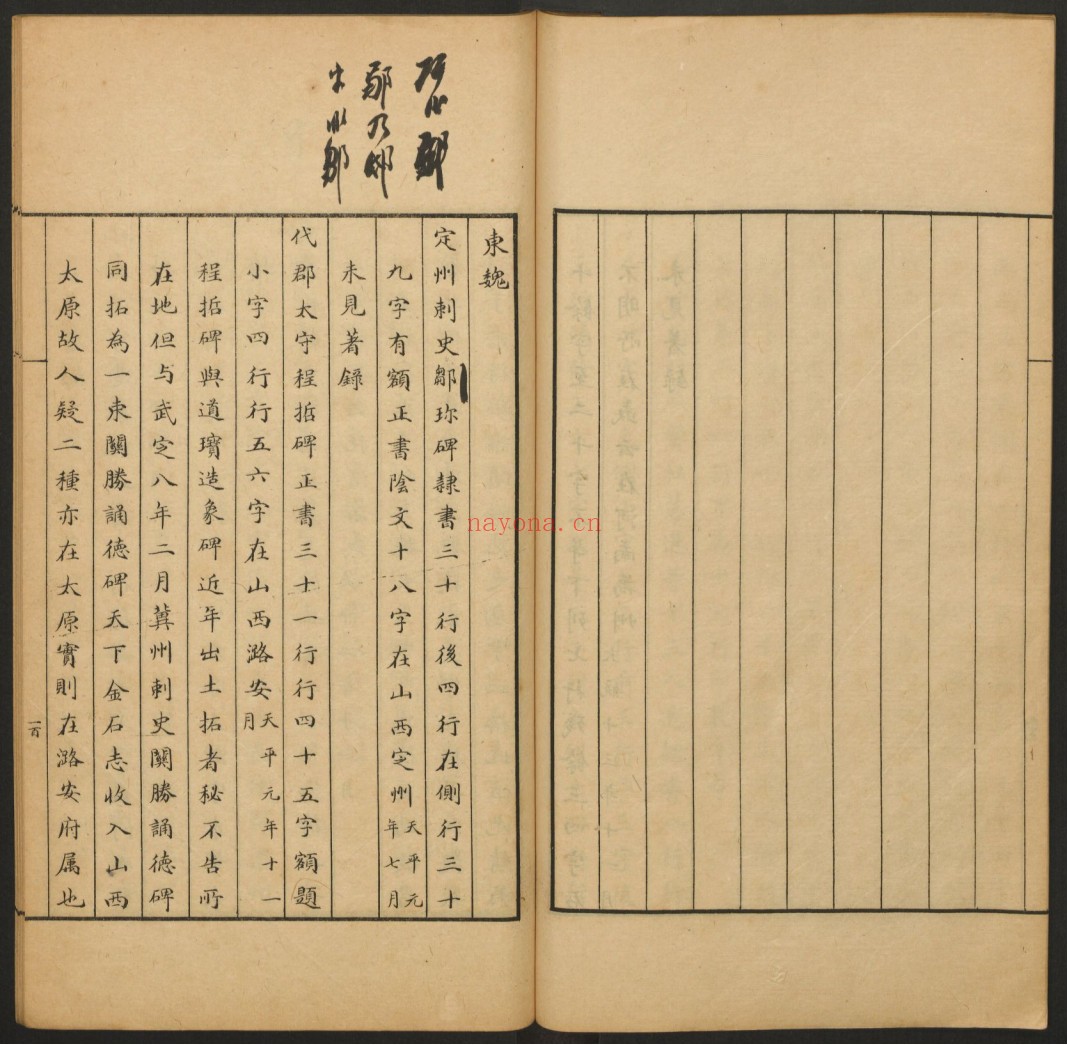 東魏
定州刺史鄒珍碑隸書三十行後四行在側行三十
九字有額正書陰文十八字在山西定州天平元年七月
未見著錄
代郡太守程哲碑正書三十一行行四十五字額題
小字四行行五六字在山西潞安天平元年十一月
程哲碑與道瓊造象碑近年出土拓者秘不告所
在地但与武定八年二月冀州刺史關勝誦德碑
同拓為一東關勝誦德碑天下金石志收入山西
太原故人疑二種亦在太原實則在潞安府属也
一百
nayona.cn